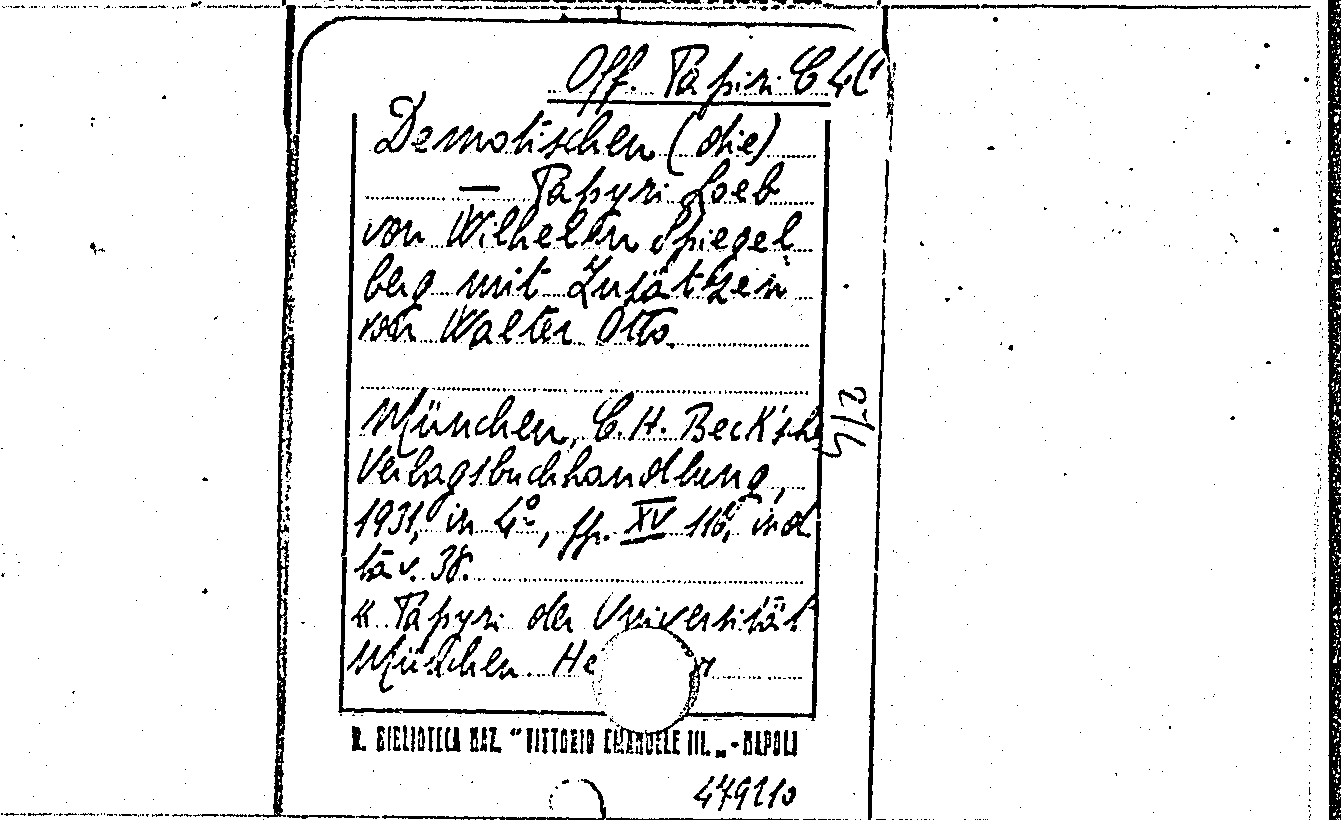 Off. Papiri C 4(1
Demotischen (die)
— Papyri Loeb
von Wilhelm Spiegel
berg mit Zusätzen
von Walter Otto.
München, C. H. Beck'sche
Verlagsbuchhandlung,
1931, in 4º, pp. XV 116, ind.
tav. 38.
« Papyri der Universität
München. He
R. BIBLIOTECA NAZ. "VITTORIO EMANUELE III. „ - NAPOLI
479210